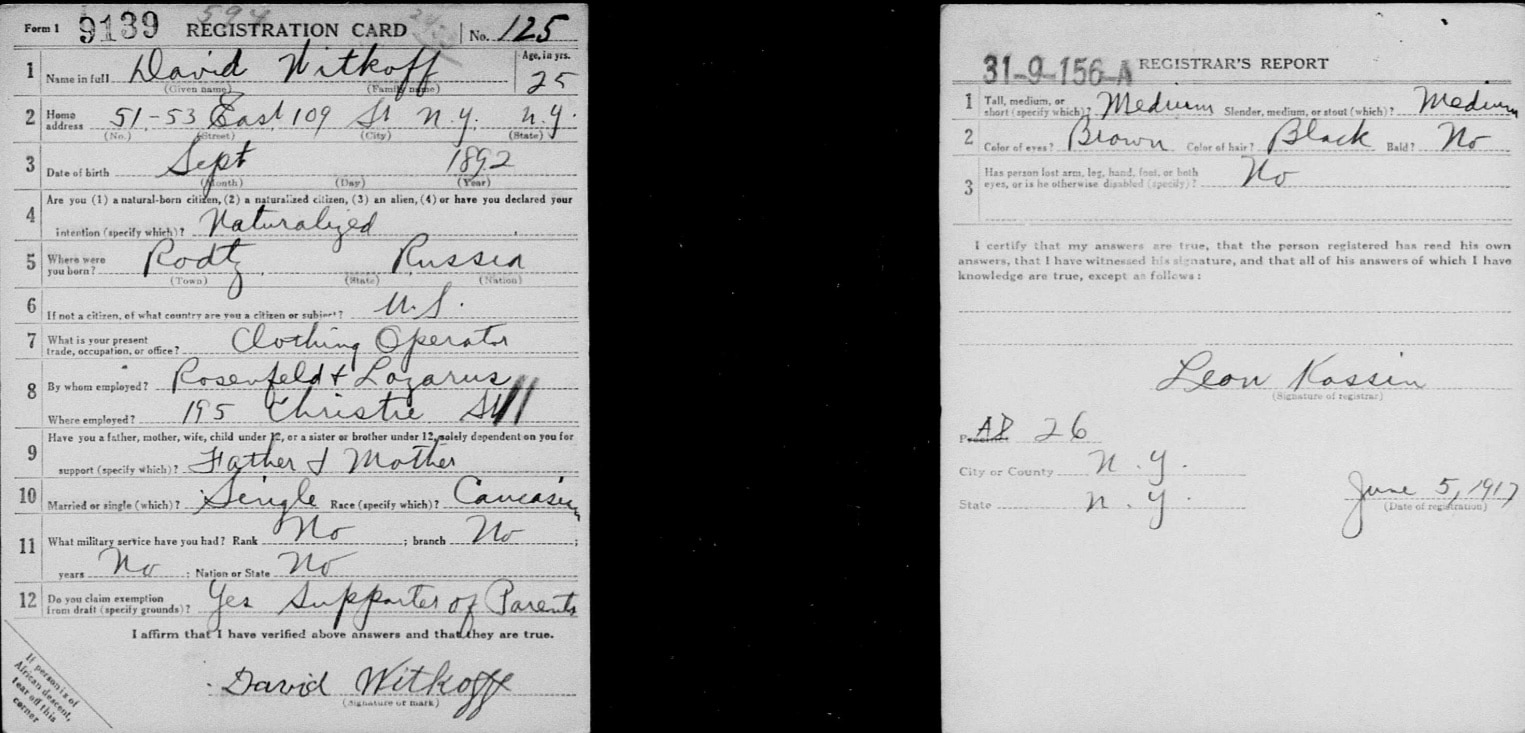 Form 1 9139 594 REGISTRATION CARD No. 125
1 Name in full David Witkoff Age, in yrs. 25
(Given name) (Family name)
2 Home address 51-53 East 109 St N.Y. N.Y.
(No.) (Street) (City) (State)
3 Date of birth Sept 1892
(Month) (Day) (Year)
4 Are you (1) a natural-born citizen, (2) a naturalized citizen, (3) an alien, (4) or have you declared your
intention (specify which)? Naturalized
5 Where were you born? Rodtz Russia
(Town) (State) (Nation)
6 If not a citizen, of what country are you a citizen or subject? U.S.
7 What is your present trade, occupation, or office? Clothing Operator
8 By whom employed? Rosenfeld + Lazarus
Where employed? 195 Christie St
9 Have you a father, mother, wife, child under 12, or a sister or brother under 12, solely dependent on you for
support (specify which)? Father & Mother
10 Married or single (which)? Single Race (specify which)? Caucasien
11 What military service have you had? Rank No ; branch No ;
years No ; Nation or State No
12 Do you claim exemption from draft (specify grounds)? Yes Supporter of Parents
I affirm that I have verified above answers and that they are true.
David Witkoff
(Signature or mark)
If person is of
African descent,
tear off this
corner
31-9-156-A REGISTRAR'S REPORT
1 Tall, medium, or short (specify which)? Medium Slender, medium, or stout (which)? Medium
2 Color of eyes? Brown Color of hair? Black Bald? No
3 Has person lost arm, leg, hand, foot, or both eyes, or is he otherwise disabled (specify)? No
I certify that my answers are true, that the person registered has read his own
answers, that I have witnessed his signature, and that all of his answers of which I have
knowledge are true, except as follows:
Leon Kassin
(Signature of registrar)
Precinct AD 26
City or County N.Y.
State N.Y. June 5, 1917
(Date of registration)